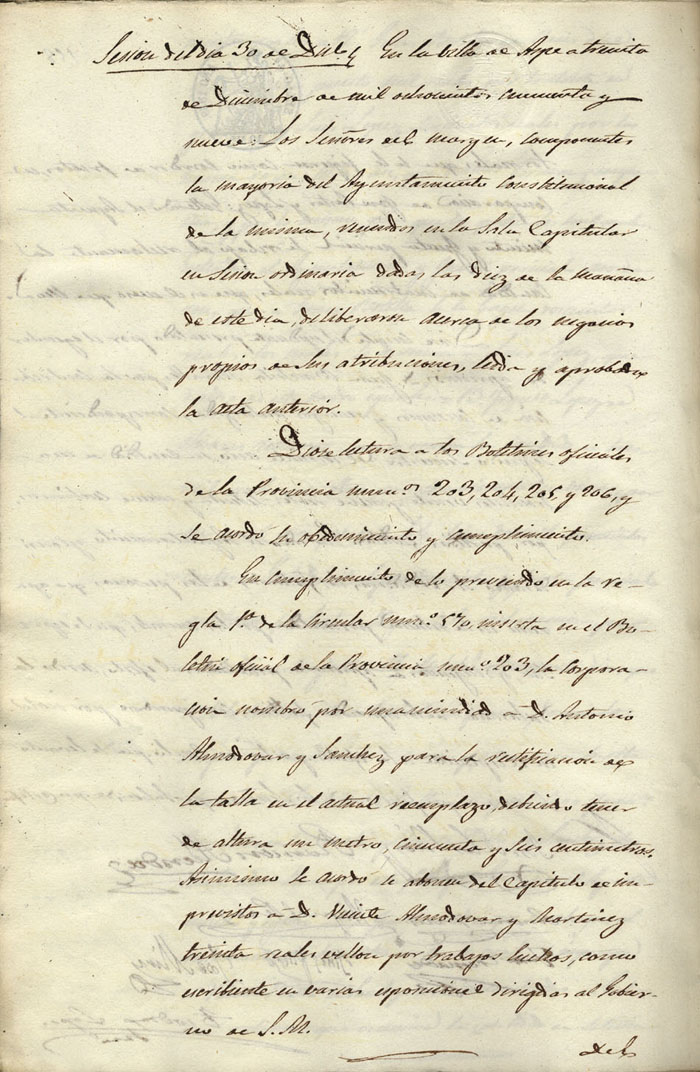 Sesion del dia 30 de Dicbe. En la villa de Aspe a treinta
de Diciembre de mil ochocientos cincuenta y
nueve: Los Señores del margen, componentes
la mayoria del Ayuntamiento Constitucional
de la misma, reunidos en la Sala Capitular
en Sesion ordinaria dadas las diez de la mañana
de este dia, deliberaron acerca de los negocios
propios de sus atribuciones, leida y aprobada
la acta anterior.
Diose lectura a los Boletines oficiales
de la Provincia numos 203, 204, 205, y 206, y
se acordó su obedecimiento y cumplimiento.
En cumplimiento de lo prevenido en la re-
gla 1ª de la Circular numo 570, inserta en el Bo-
letin oficial de la Provincia numo 203, la Corpora-
cion nombró por unanimidad a D. Antonio
Almodovar y Sanchez para la rectificacion de
la talla en el actual reemplazo, debiendo tener
de altura un metro, cincuenta y seis centimetros.
Asimismo se acordó se abonen del Capitulo de im-
previstos a D. Vicente Almodovar y Martinez
treinta reales vellon por trabajos hechos, como
escribiente en varias esposiciones dirigidas al Gobier-
no de S.M.